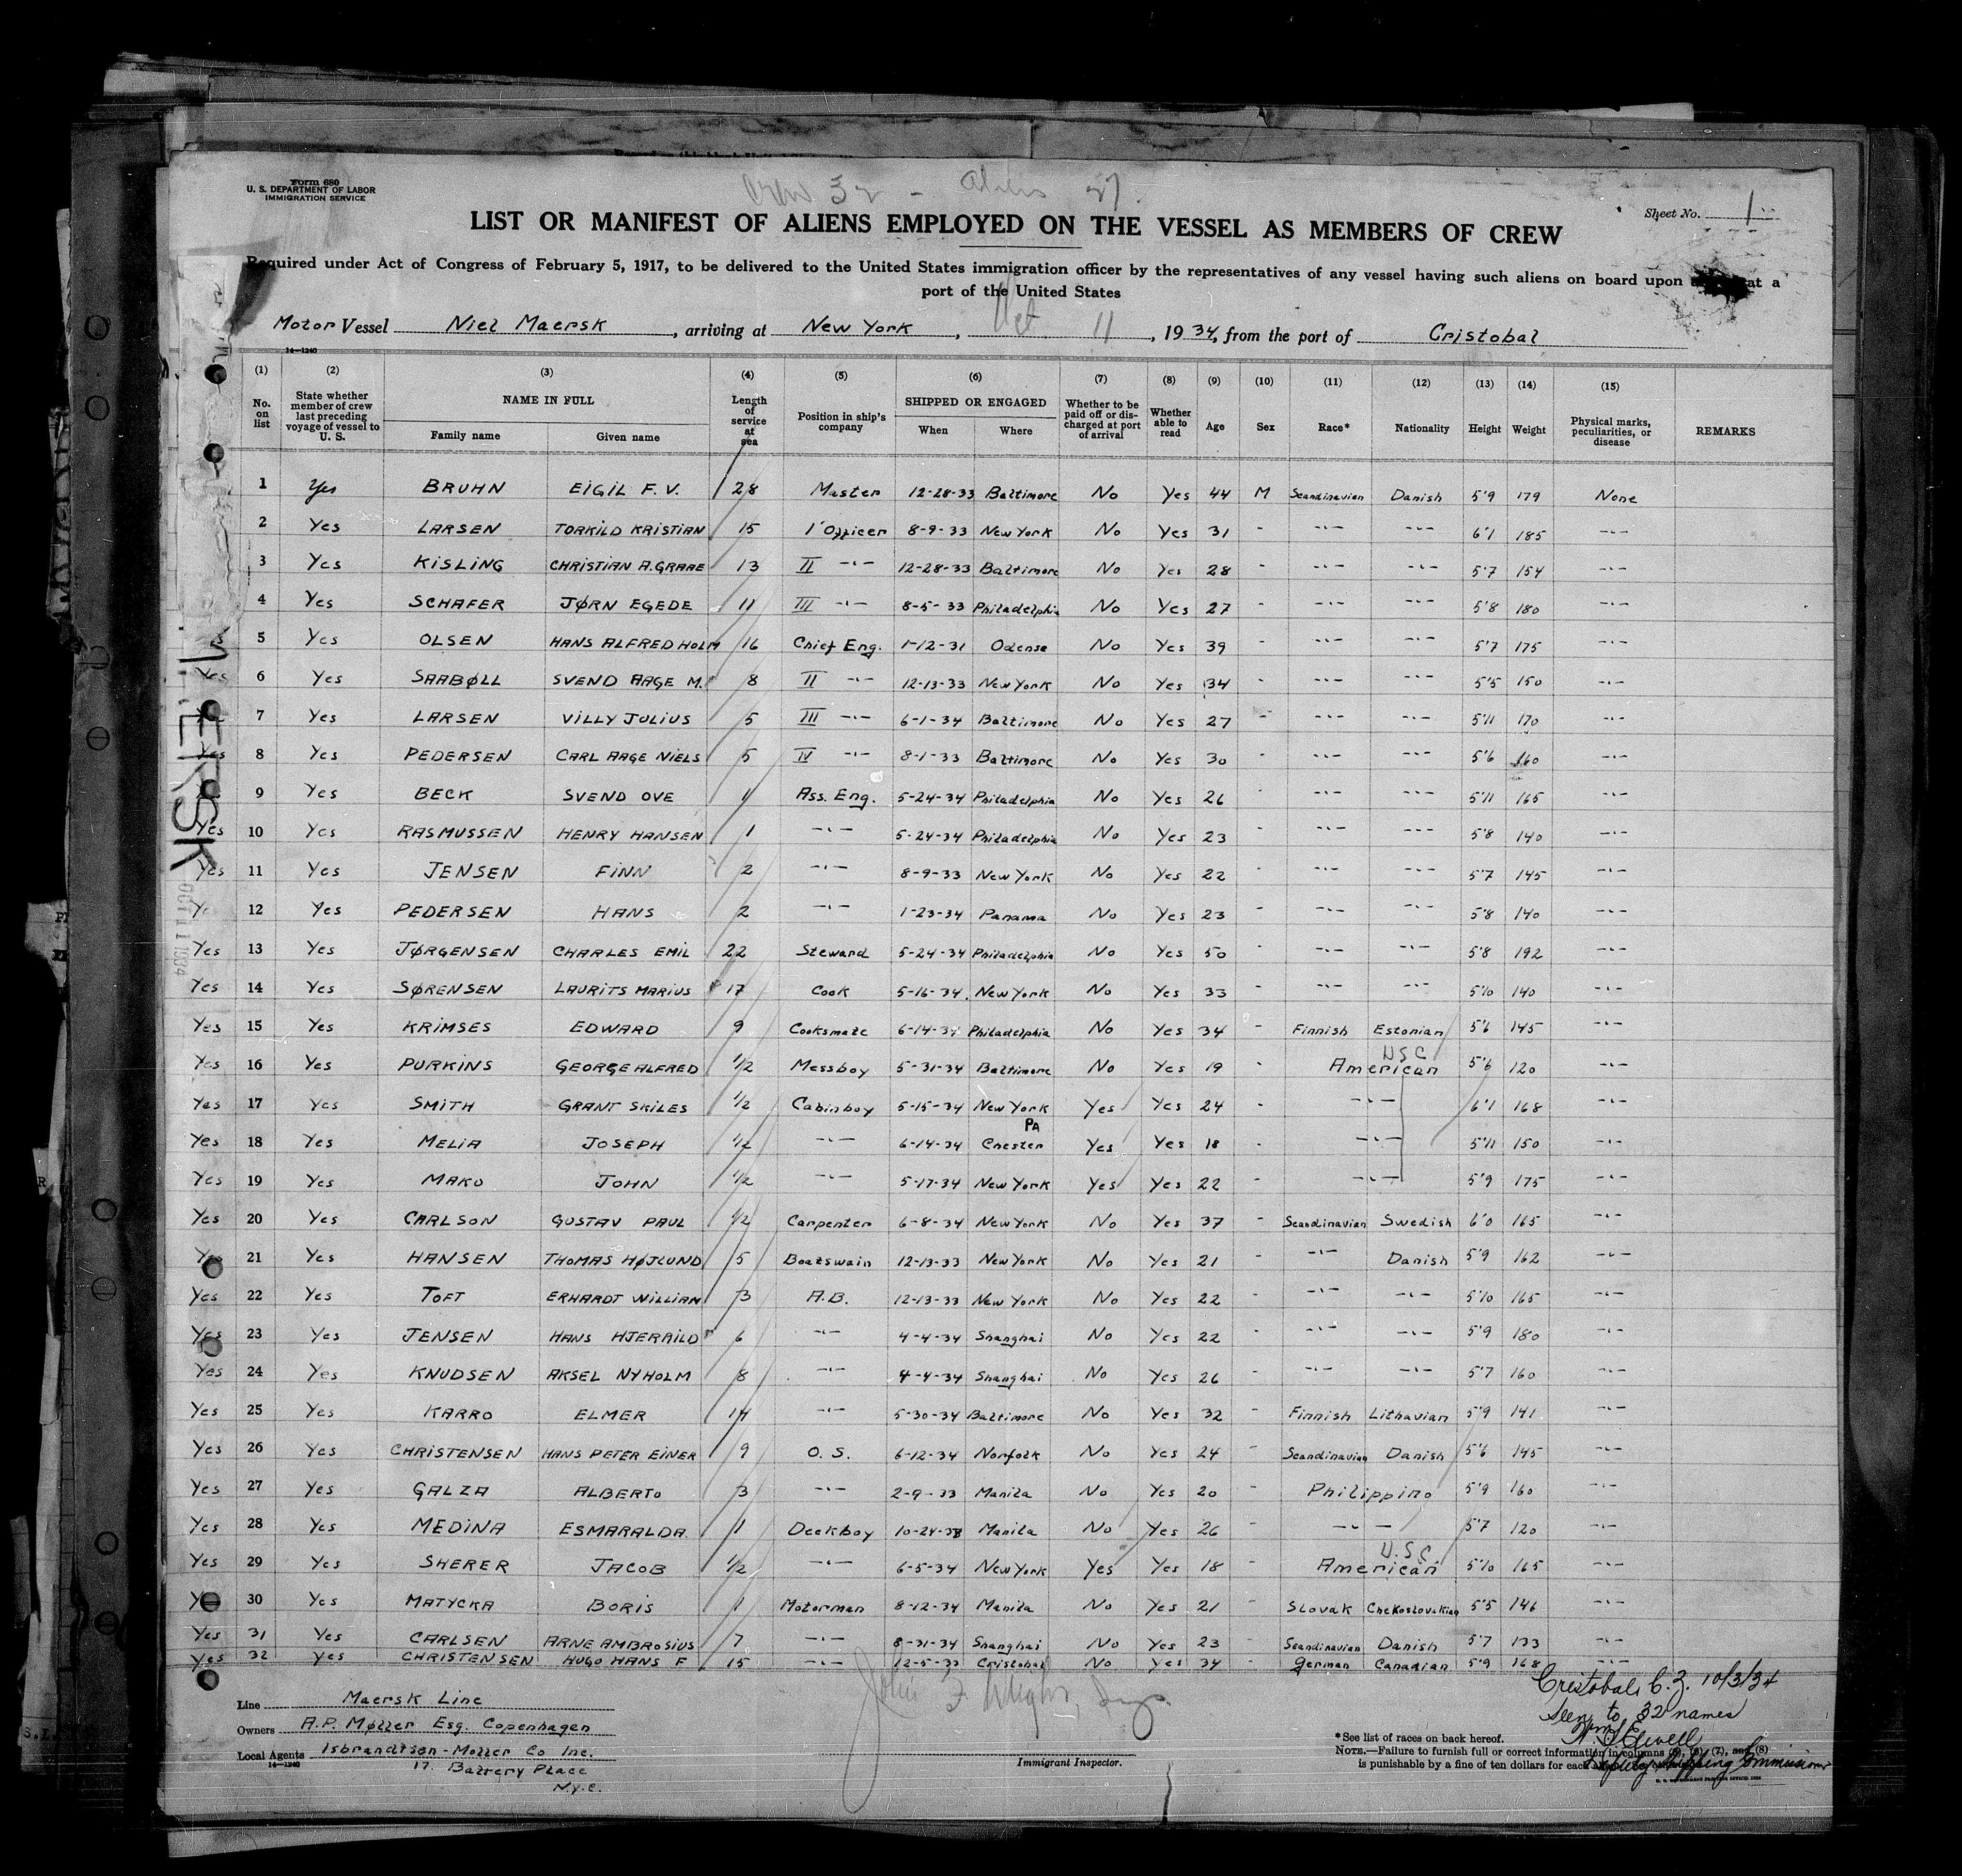 Form 680
U. S. DEPARTMENT OF LABOR
IMMIGRATION SERVICE
Crew 32 - Aliens 27.
Sheet No. 1
LIST OR MANIFEST OF ALIENS EMPLOYED ON THE VESSEL AS MEMBERS OF CREW
Required under Act of Congress of February 5, 1917, to be delivered to the United States immigration officer by the representatives of any vessel having such aliens on board upon at a
port of the United States
Motor Vessel Niel Maersk, arriving at New York, Oct 11, 1934, from the port of Cristobal
14—1240
(1) (2) (3) (4) (5) (6) (7) (8) (9) (10) (11) (12) (13) (14) (15)
No. on list State whether member of crew last preceding voyage of vessel to U. S. NAME IN FULL Family name Given name Length of service at sea Position in ship's company SHIPPED OR ENGAGED When Where Whether to be paid off or discharged at port of arrival Whether able to read Age Sex Race* Nationality Height Weight Physical marks, peculiarities, or disease REMARKS
1 Yes BRUHN EIGIL F. V. 28 Master 12-28-33 Baltimore No Yes 44 M Scandinavian Danish 5'9 179 None
2 Yes LARSEN TORKILD KRISTIAN 15 1' Officer 8-9-33 New York No Yes 31 - -"- -"- 6'1 185 -"-
3 Yes KISLING CHRISTIAN A. GRAAE 13 II -"- 12-28-33 Baltimore No Yes 28 - -"- -"- 5'7 154 -"-
4 Yes SCHAFER JØRN EGEDE 11 III -"- 8-5-33 Philadelphia No Yes 27 - -"- -"- 5'8 180 -"-
5 Yes OLSEN HANS ALFRED HOLM 16 Chief Eng. 1-12-31 Odense No Yes 39 -"- -"- 5'7 175 -"-
Yes 6 Yes SAABØLL SVEND AAGE M. 8 II -"- 12-13-33 New York No Yes 34 - -"- -"- 5'5 150 -"-
7 Yes LARSEN VILLY JULIUS 5 III -"- 6-1-34 Baltimore No Yes 27 - -"- -"- 5'11 170 -"-
Yes 8 Yes PEDERSEN CARL AAGE NIELS 5 IV -"- 8-1-33 Baltimore No Yes 30 - -"- -"- 5'6 160 -"-
9 Yes BECK SVEND OVE 1 Ass. Eng. 5-24-34 Philadelphia No Yes 26 - -"- -"- 5'11 165 -"-
Yes 10 Yes RASMUSSEN HENRY HANSEN 1 -"- 5-24-34 Philadelphia No Yes 23 - -"- -"- 5'8 140 -"-
Yes 11 Yes JENSEN FINN 2 -"- 8-9-33 New York No Yes 22 - -"- -"- 5'7 145 -"-
Yes 12 Yes PEDERSEN HANS 2 -"- 1-23-34 Panama No Yes 23 - -"- -"- 5'8 140 -"-
Yes 13 Yes JØRGENSEN CHARLES EMIL 22 Steward 5-24-34 Philadelphia No Yes 50 - -"- -"- 5'8 192 -"-
Yes 14 Yes SØRENSEN LAURITS MARIUS 17 Cook 5-16-34 New York No Yes 33 - -"- -"- 5'10 140 -"-
Yes 15 Yes KRIMSES EDWARD 9 Cooksmate 6-14-34 Philadelphia No Yes 34 - Finnish Estonian 5'6 145 -"-
Yes 16 Yes PURKINS GEORGE ALFRED 1/2 Messboy 5-31-34 Baltimore No Yes 19 - American USC 5'6 120 -"-
Yes 17 Yes SMITH GRANT SKILES 1/2 Cabinboy 5-15-34 New York Yes Yes 24 - -"- 6'1 168 -"-
Yes 18 Yes MELIA JOSEPH 1/2 -"- 6-14-34 Chester PA Yes Yes 18 - -"- 5'11 150 -"-
Yes 19 Yes MAKO JOHN 1/2 -"- 5-17-34 New York Yes Yes 22 - -"- 5'9 175 -"-
Yes 20 Yes CARLSON GUSTAV PAUL 1/2 Carpenter 6-8-34 New York No Yes 37 - Scandinavian Swedish 6'0 165 -"-
Yes 21 Yes HANSEN THOMAS HØJLUND 5 Boatswain 12-13-33 New York No Yes 21 - -"- Danish 5'9 162 -"-
Yes 22 Yes TOFT ERHARDT WILLIAM 3 A.B. 12-13-33 New York No Yes 22 - -"- -"- 5'10 165 -"-
Yes 23 Yes JENSEN HANS HJERRILD 6 -"- 4-4-34 Shanghai No Yes 22 - -"- -"- 5'9 180 -"-
Yes 24 Yes KNUDSEN AKSEL NYHOLM 8 -"- 4-4-34 Shanghai No Yes 26 - -"- -"- 5'7 160 -"-
Yes 25 Yes KARRO ELMER 14 -"- 5-30-34 Baltimore No Yes 32 - Finnish Lithavian 5'9 141 -"-
Yes 26 Yes CHRISTENSEN HANS PETER EINER 9 O. S. 6-12-34 Norfolk No Yes 24 - Scandinavian Danish 5'6 145 -"-
Yes 27 Yes GALZA ALBERTO 3 -"- 2-9-33 Manila No Yes 20 - Philippino 5'9 160 -"-
Yes 28 Yes MEDINA ESMARALDA 1 Deckboy 10-24-33 Manila No Yes 26 - -"- 5'7 120 -"-
Yes 29 Yes SHERER JACOB 1/2 -"- 6-5-34 New York Yes Yes 18 - American U.S.C. 5'10 165 -"-
Yes 30 Yes MATYCKA BORIS 1 Motorman 8-12-34 Manila No Yes 21 - Slovak Chekoslovakian 5'5 146 -"-
Yes 31 Yes CARLSEN ARNE AMBROSIUS 7 -"- 8-31-34 Shanghai No Yes 23 - Scandinavian Danish 5'7 133 -"-
Yes 32 Yes CHRISTENSEN HUGO HANS F 15 -"- 12-5-33 Cristobal No Yes 34 - German Canadian 5'9 168 -"-
MAERSK
OCT 11 1934
Line Maersk Line
Owners A.P. Møller Esq. Copenhagen
Local Agents Isbrandtsen-Moller Co Inc.
14—1240
17 Battery Place
N.Y.C.
John F.
Immigrant Inspector.
Cristobal, C.Z. 10/3/34
Seen to 32 names
Deputy Shipping Commissioner
*See list of races on back hereof.
NOTE.—Failure to furnish full or correct information in columns (7), and (8)
is punishable by a fine of ten dollars for each